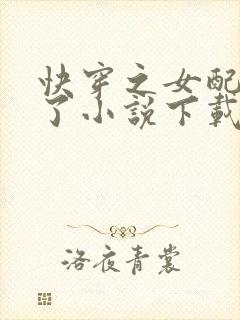 快穿之女配
了小説下載
洛夜青裳